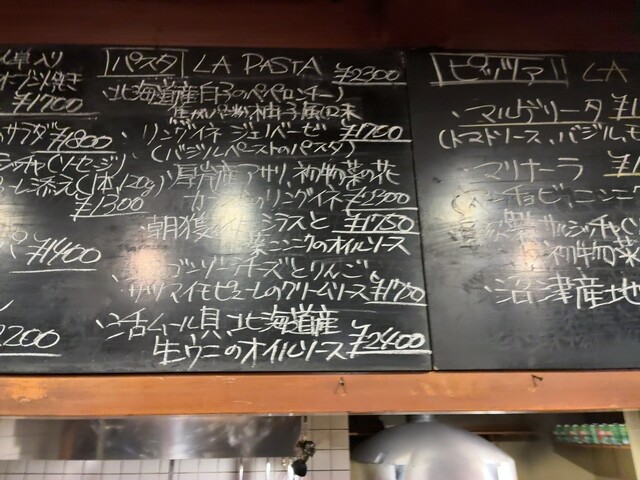 卓入り
オーブン焼き
¥1700
サラダ ¥1800
(ソーセージ)
添え(1本120g)
¥1300
¥1400
2200
パスタ LA PASTA ¥2300
・北海道産白子のペペロンチーノ
柚子風味
・リングイネ ジェノベーゼ ¥1700
(バジルペーストのパスタ)
・厚岸産アサリ、初物菜の花
リングイネ ¥2300
・朝獲れ シラスと ¥1750
葉ニンニクのオイルソース
・ゴルゴンゾーラチーズとりんご、
サツマイモピューレのクリームソース ¥1750
・活ムール貝、北海道産
生ウニのオイルソース ¥2400
ピッツァ LA
・マルゲリータ
(トマトソース、バジル、モ
・マリナーラ
アンチョビ、ニンニ
サルシッチャ(
初物菜
・沼津産地